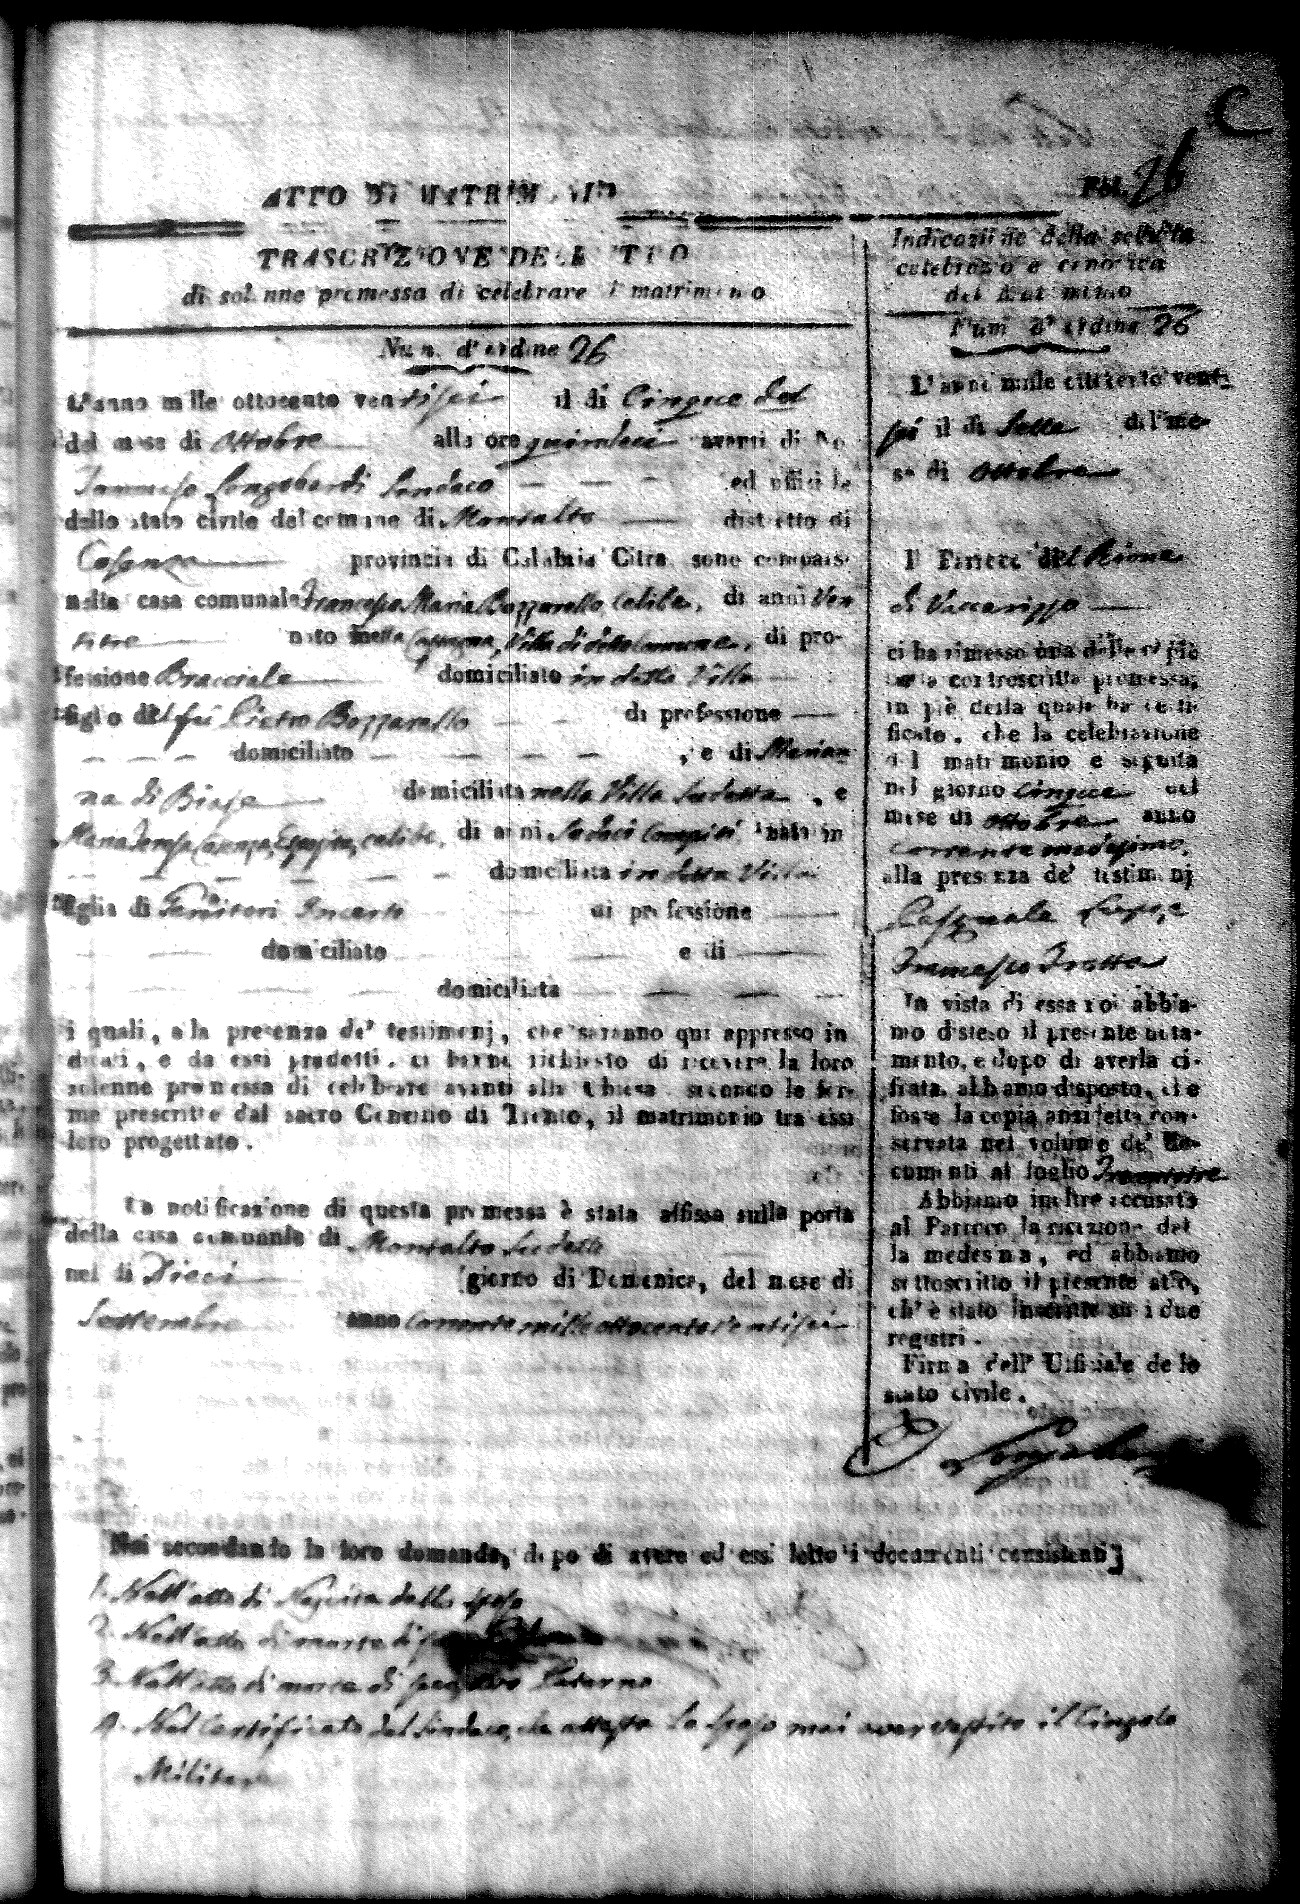 C
Fol. 26
ATTO DI MATRIMONIO
TRASCRIZIONE DELL'ATTO
di solenne promessa di celebrare il matrimonio
Num. d'ordine 26
L'anno mille ottocento ventisei il di Cinque del
del mese di Ottobre alle ore quindeci avanti di Noi
Tommaso Longobardi Sindaco ed uffiziale
dello stato civile del comune di Montalto distretto di
Cosenza provincia di Calabria Citra sono comparsi
nella casa comunale Francesco Maria Bozzarello Celibe, di anni Ven
titre nato nella Villa di detto Comune, di pro-
fessione Bracciale domiciliato in detta Villa
figlio del fu Pietro Bozzarello di professione
domiciliato , e di Marian
na di Biase domiciliata nella Villa sudetta , e
Maria Teresa Esposita, celibe, di anni Sedeci Compiti nata in
domiciliata in detta Villa
figlia di Genitori Incerti di professione
domiciliato e di
domiciliata
i quali, alla presenza de' testimonj, che saranno qui appresso in
dicati, e da essi prodotti, ci hanno richiesto di ricevere la loro
solenne promessa di celebrare avanti alla Chiesa secondo le for-
me prescritte dal sacro Concilio di Trento, il matrimonio tra essi
loro progettato.
La notificazione di questa promessa è stata affissa sulla porta
della casa comunale di Montalto sudetto
nel di Dieci giorno di Domenica, del mese di
Settembre anno Corrente mille ottocento ventisei
Indicazione della seguita
celebrazione canonica
del matrimonio
Num. d'ordine 26
L'anno mille ottocento vent-
sei il di Sette dell'me-
se di Ottobre
Il Parroco del Rione
di Vaccarizzo
ci ha rimesso una delle copie
della controscritta promessa,
in piè della quale ha certi-
ficato, che la celebrazione
del matrimonio è seguita
nel giorno Cinque del
mese di Ottobre anno
corrente medesimo,
alla presenza de' testimonj
Pasquale
Francesco Trotta
In vista di essa noi abbia-
mo disteso il presente nota-
mento, e dopo di averla ci-
frata, abbiamo disposto, che
fosse la copia anzidetta con-
servata nel volume de' do-
cumenti al foglio
Abbiamo inoltre accusato
al Parroco la ricezione del
la medesima, ed abbiamo
sottoscritto il presente atto,
ch'è stato inscritto su i due
registri.
Firma dell' Uffiziale dello
stato civile.
Longobardi
Noi secondando la loro domanda, dopo di avere ad essi letto i documenti consistenti
1. Nell'atto di Nascita dello sposo
2. Nell'atto di morte di
3. Nell'atto di morte di Paterno
4. Nel Certificato del Sindaco, che attesta lo sposo mai aver vestito il Cingolo
Militare